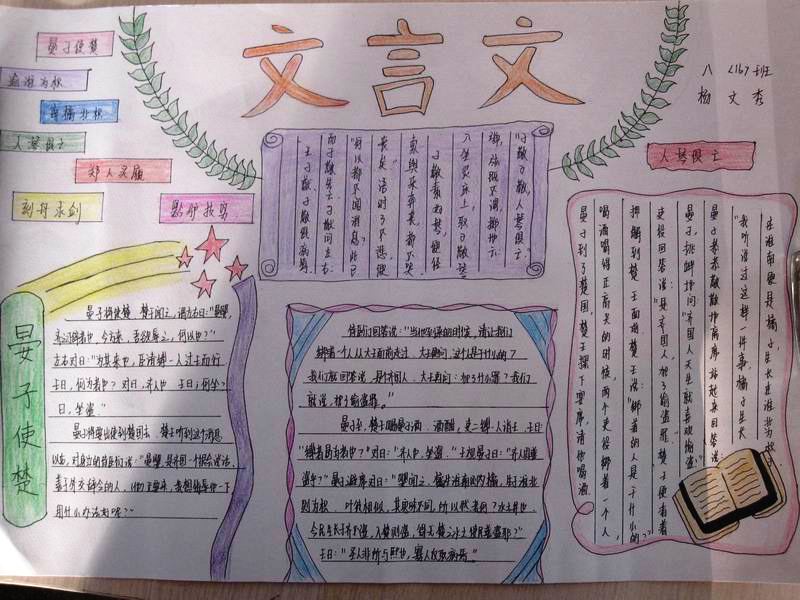 文言文
八 <16>班
杨文秀
晏子使楚
逾淮为枳
南橘北枳
人琴俱亡
郑人买履
刻舟求剑
黔驴技穷
王子猷、子敬俱病笃
而子敬先亡子猷问左右
"何以都不闻消息?此已
丧矣"语时了不悲,便
索舆来奔丧,都不哭
子敬素好琴,便径
入坐灵床上,取子敬琴
弹,弦既不调,掷地云:
"子敬子敬,人琴俱亡"
人琴俱亡
晏子到了楚国,楚王摆下宴席,请他喝酒
喝酒喝得正高兴的时候,两个吏役绑着一个人,
押解到楚王面前楚王说:"绑着的人是干什么的?"
吏役回答说:"是齐国人,犯了偷盗罪。楚王便看着
晏子,挑衅地问"齐国人天生就喜欢偷盗"
晏子恭恭敬敬地离席站起来回答说
"我听说过这样一件事,橘子生长
在淮南便是橘子,生长在淮北为枳
晏子使楚
晏子将使楚,楚王闻之,谓左右曰:"晏婴,
齐之习辞者也,今方来,吾欲辱之,何以也?"
左右对曰:"为其来也,臣请缚一人过王而行
王曰,何为者也?对曰,齐人也,王曰:何坐?
曰,坐盗"
晏子将要出使到楚国去,楚王听到这个消息
以后,对身边的侍臣们说:"晏婴,是齐国一个很会说话,
善于外交辞令的人,
用什么办法好呢?"
侍臣们回答说:"当他到来的时候,请让我们
绑着一个人从大王面前走过,大王便问,这个人是干什么的?
我们就回答说,是齐国人,大王再问:犯了什么罪?我们
就说,犯了偷盗罪。"
晏子至,楚王赐晏子酒,酒酣,吏二缚一人诣王,王曰:
"缚者曷为者也?"对曰:"齐人也,坐盗。"王视晏子曰:"齐人固善
盗乎?"晏子避席对曰:"婴闻之,橘生淮南则为橘,生于淮北
则为枳,叶徒相似,其实味不同,所以然者何?水土异也,
今民生长于齐不盗,入楚则盗,得无楚之水土使民善盗耶?"
王曰:"圣人非所与熙也,寡人反取病焉。"